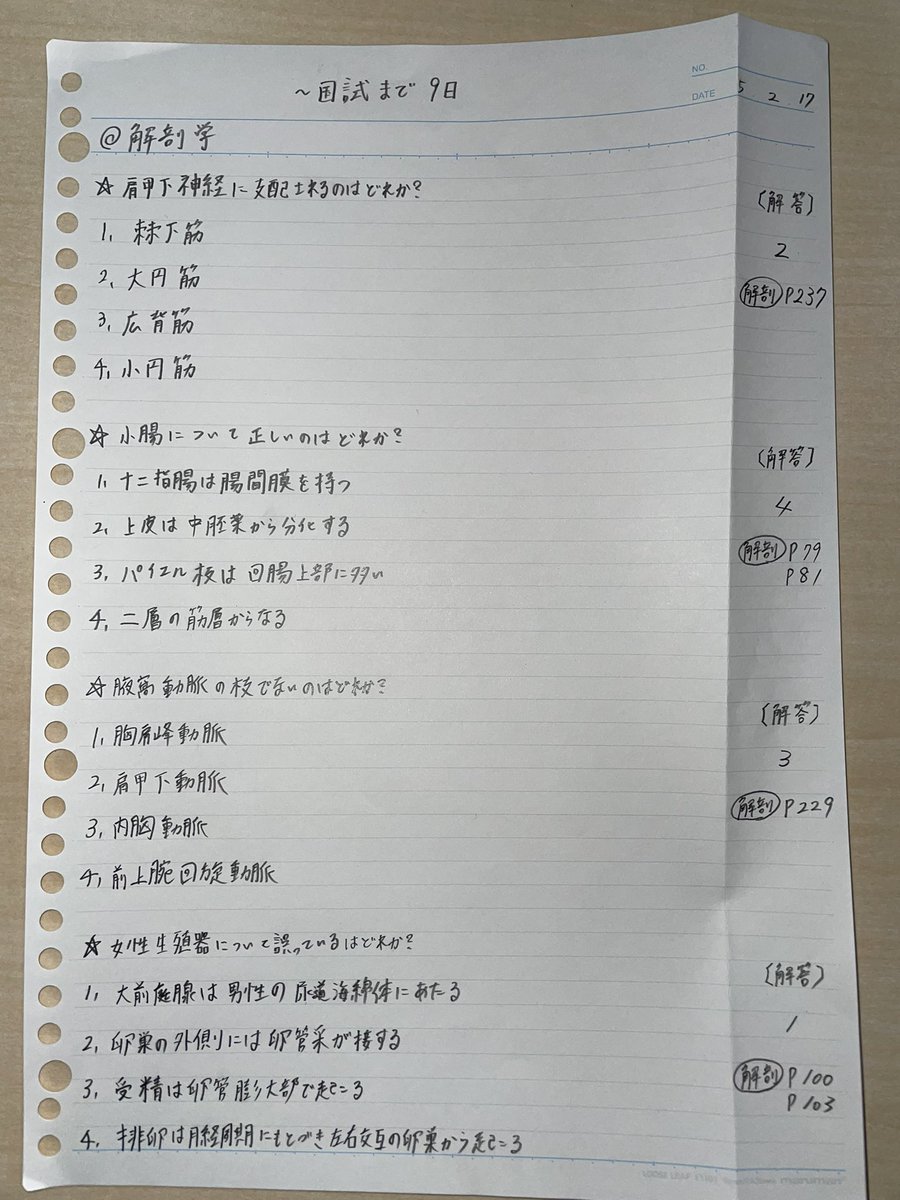 ~国試まで 9日
NO.
DATE 5. 2. 17
@解剖学
☆ 肩甲下神経に支配されるのはどれか?
〔解答〕
1, 棘下筋
2
2, 大円筋
解剖 P237
3, 広背筋
4, 小円筋
☆ 小腸について正しいのはどれか?
〔解答〕
1, 十二指腸は腸間膜を持つ
4
2, 上皮は中胚葉から分化する
解剖 P79
3, パイエル板は回腸上部に多い
P81
4, 二層の筋層からなる
☆ 腋窩動脈の枝でないのはどれか?
〔解答〕
1, 胸肩峰動脈
3
2, 肩甲下動脈
解剖 P229
3, 内胸動脈
4, 前上腕回旋動脈
☆ 女性生殖器について誤っているはどれか?
〔解答〕
1, 大前庭腺は男性の尿道海綿体にあたる
1
2, 卵巣の外側には卵管采が接する
解剖 P100
3, 受精は卵管膨大部で起こる
P103
4. 排卵は月経周期にもとづき左右交互の卵巣から起こる